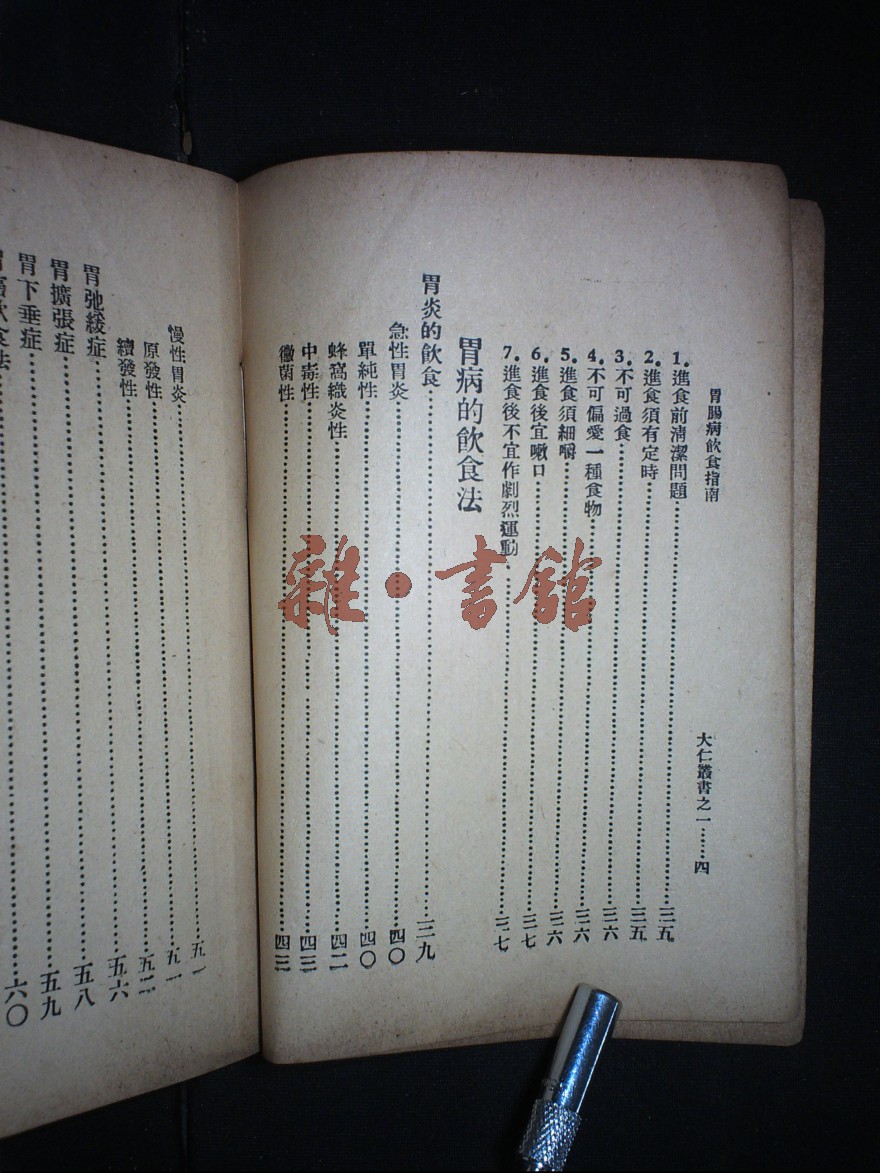 胃腸病飲食指南
大仁叢書之一……四
1.進食前清潔問題……三五
2.進食須有定時……三五
3.不可過食……三六
4.不可偏愛一種食物……三六
5.進食須細嚼……三六
6.進食後宜嗽口……三七
7.進食後不宜作劇烈運動……三七
胃病的飲食法
胃炎的飲食……三九
急性胃炎……四〇
單純性……四〇
蜂窩織炎性……四二
中毒性……四三
黴菌性……四三
慢性胃炎……五一
原發性……五二
續發性……五六
胃弛緩症……五八
胃擴張症……五九
胃下垂症……六〇
飲食法
雜·書館